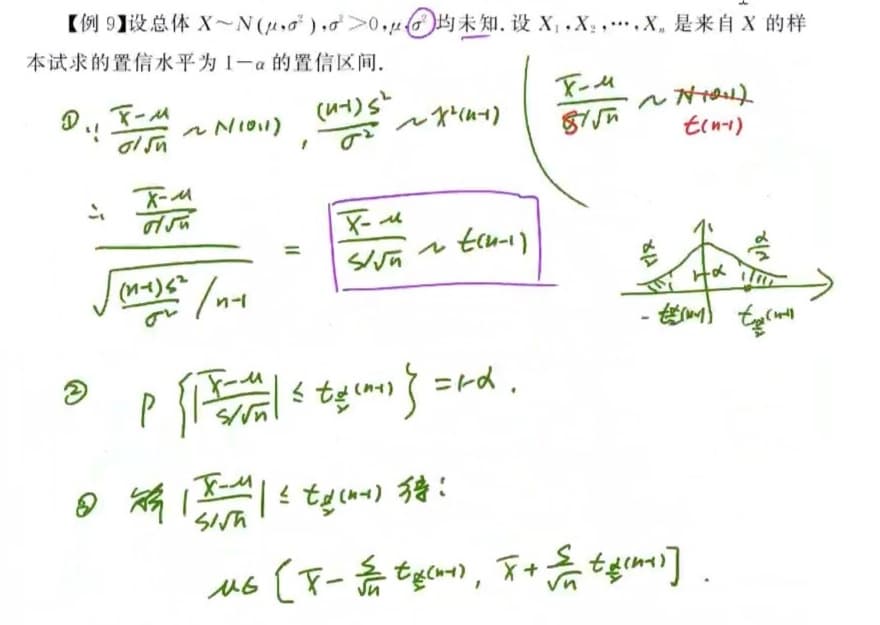 【例 9】设总体 X～N(μ,σ²),σ²>0,μ,σ²均未知.设 X₁,X₂,…,Xₙ 是来自 X 的样
本试求的置信水平为 1－α 的置信区间.
① ∵ (X̄-μ)/(σ/√n) ~ N(0,1) , (n-1)S²/σ² ~ χ²(n-1)
(X̄-μ)/(S/√n) ~ N(0,1)
t(n-1)
∴ ((X̄-μ)/(σ/√n)) / √((n-1)S²/σ² / n-1) = (X̄-μ)/(S/√n) ~ t(n-1)
α/2 1-α α/2
-t_{α/2}(n-1) t_{α/2}(n-1)
② P{|(X̄-μ)/(S/√n)| ≤ t_{α/2}(n-1)} = 1-α .
③ 解 |(X̄-μ)/(S/√n)| ≤ t_{α/2}(n-1) 得:
μ∈[X̄ - S/√n t_{α/2}(n-1), X̄ + S/√n t_{α/2}(n-1)] .